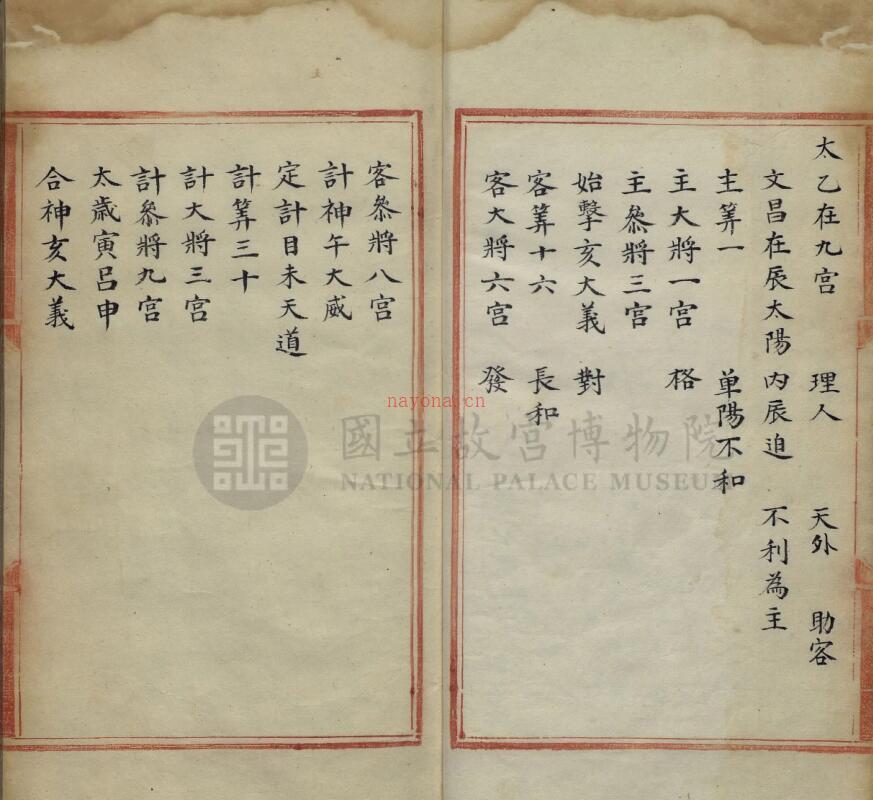 太乙在九宮　理人　天外　助客
文昌在辰太陽　內辰迫　不利為主
主筭一　单陽不和
主大將一宮　格
主叅將三宮
始擊亥大義　對
客筭十六　長和
客大將六宮　發
客叅將八宮
計神午大威
定計目未天道
計筭三十
計大將三宮
計叅將九宮
太歲寅呂申
合神亥大義
nayona.cn
國立故宮博物院
NATIONAL PALACE MUSEUM